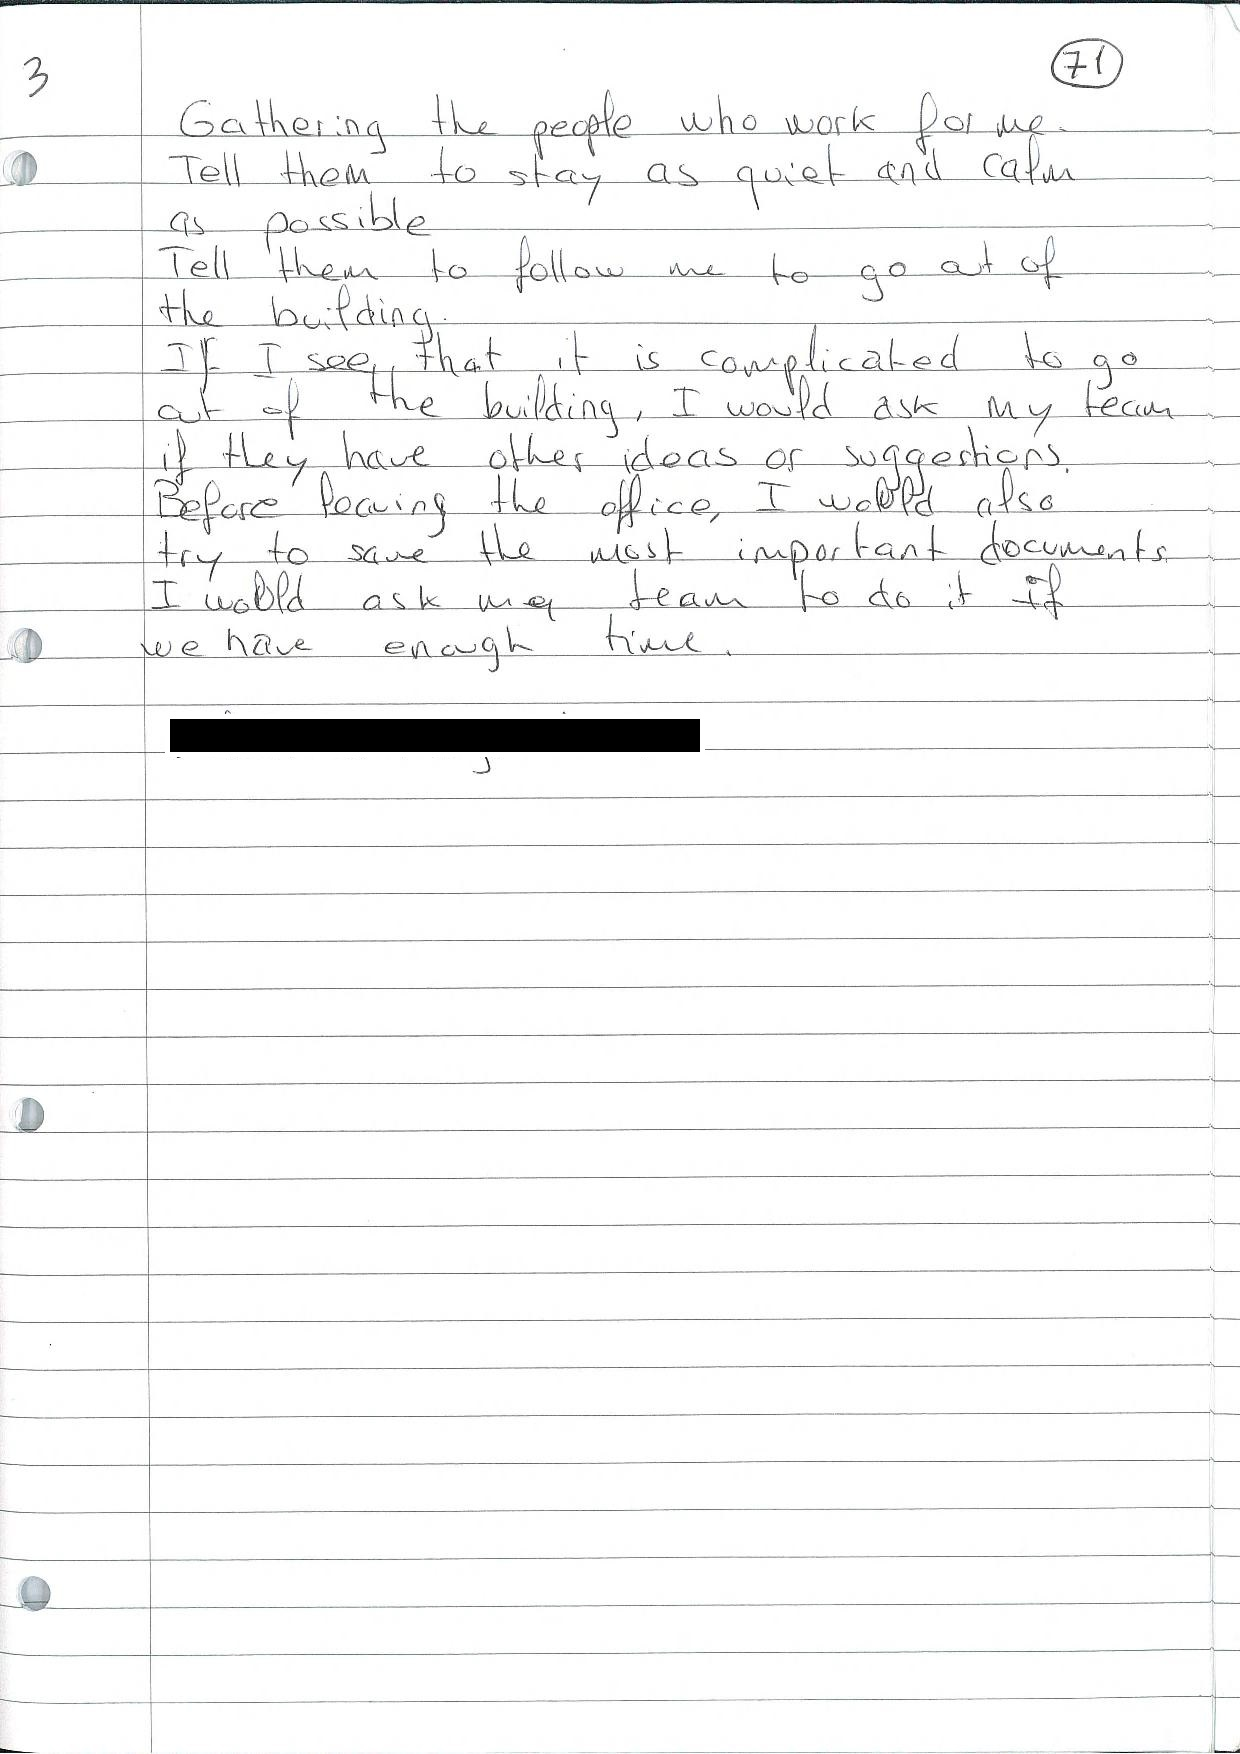 3
71
Gathering the people who work for me.
Tell them to stay as quiet and calm
as possible
Tell them to follow me to go out of
the building.
If I see, that it is complicated to go
out of the building, I would ask my team
if they have other ideas or suggestions.
Before leaving the office, I would also
try to save the most important documents.
I would ask my team to do it if
we have enough time.